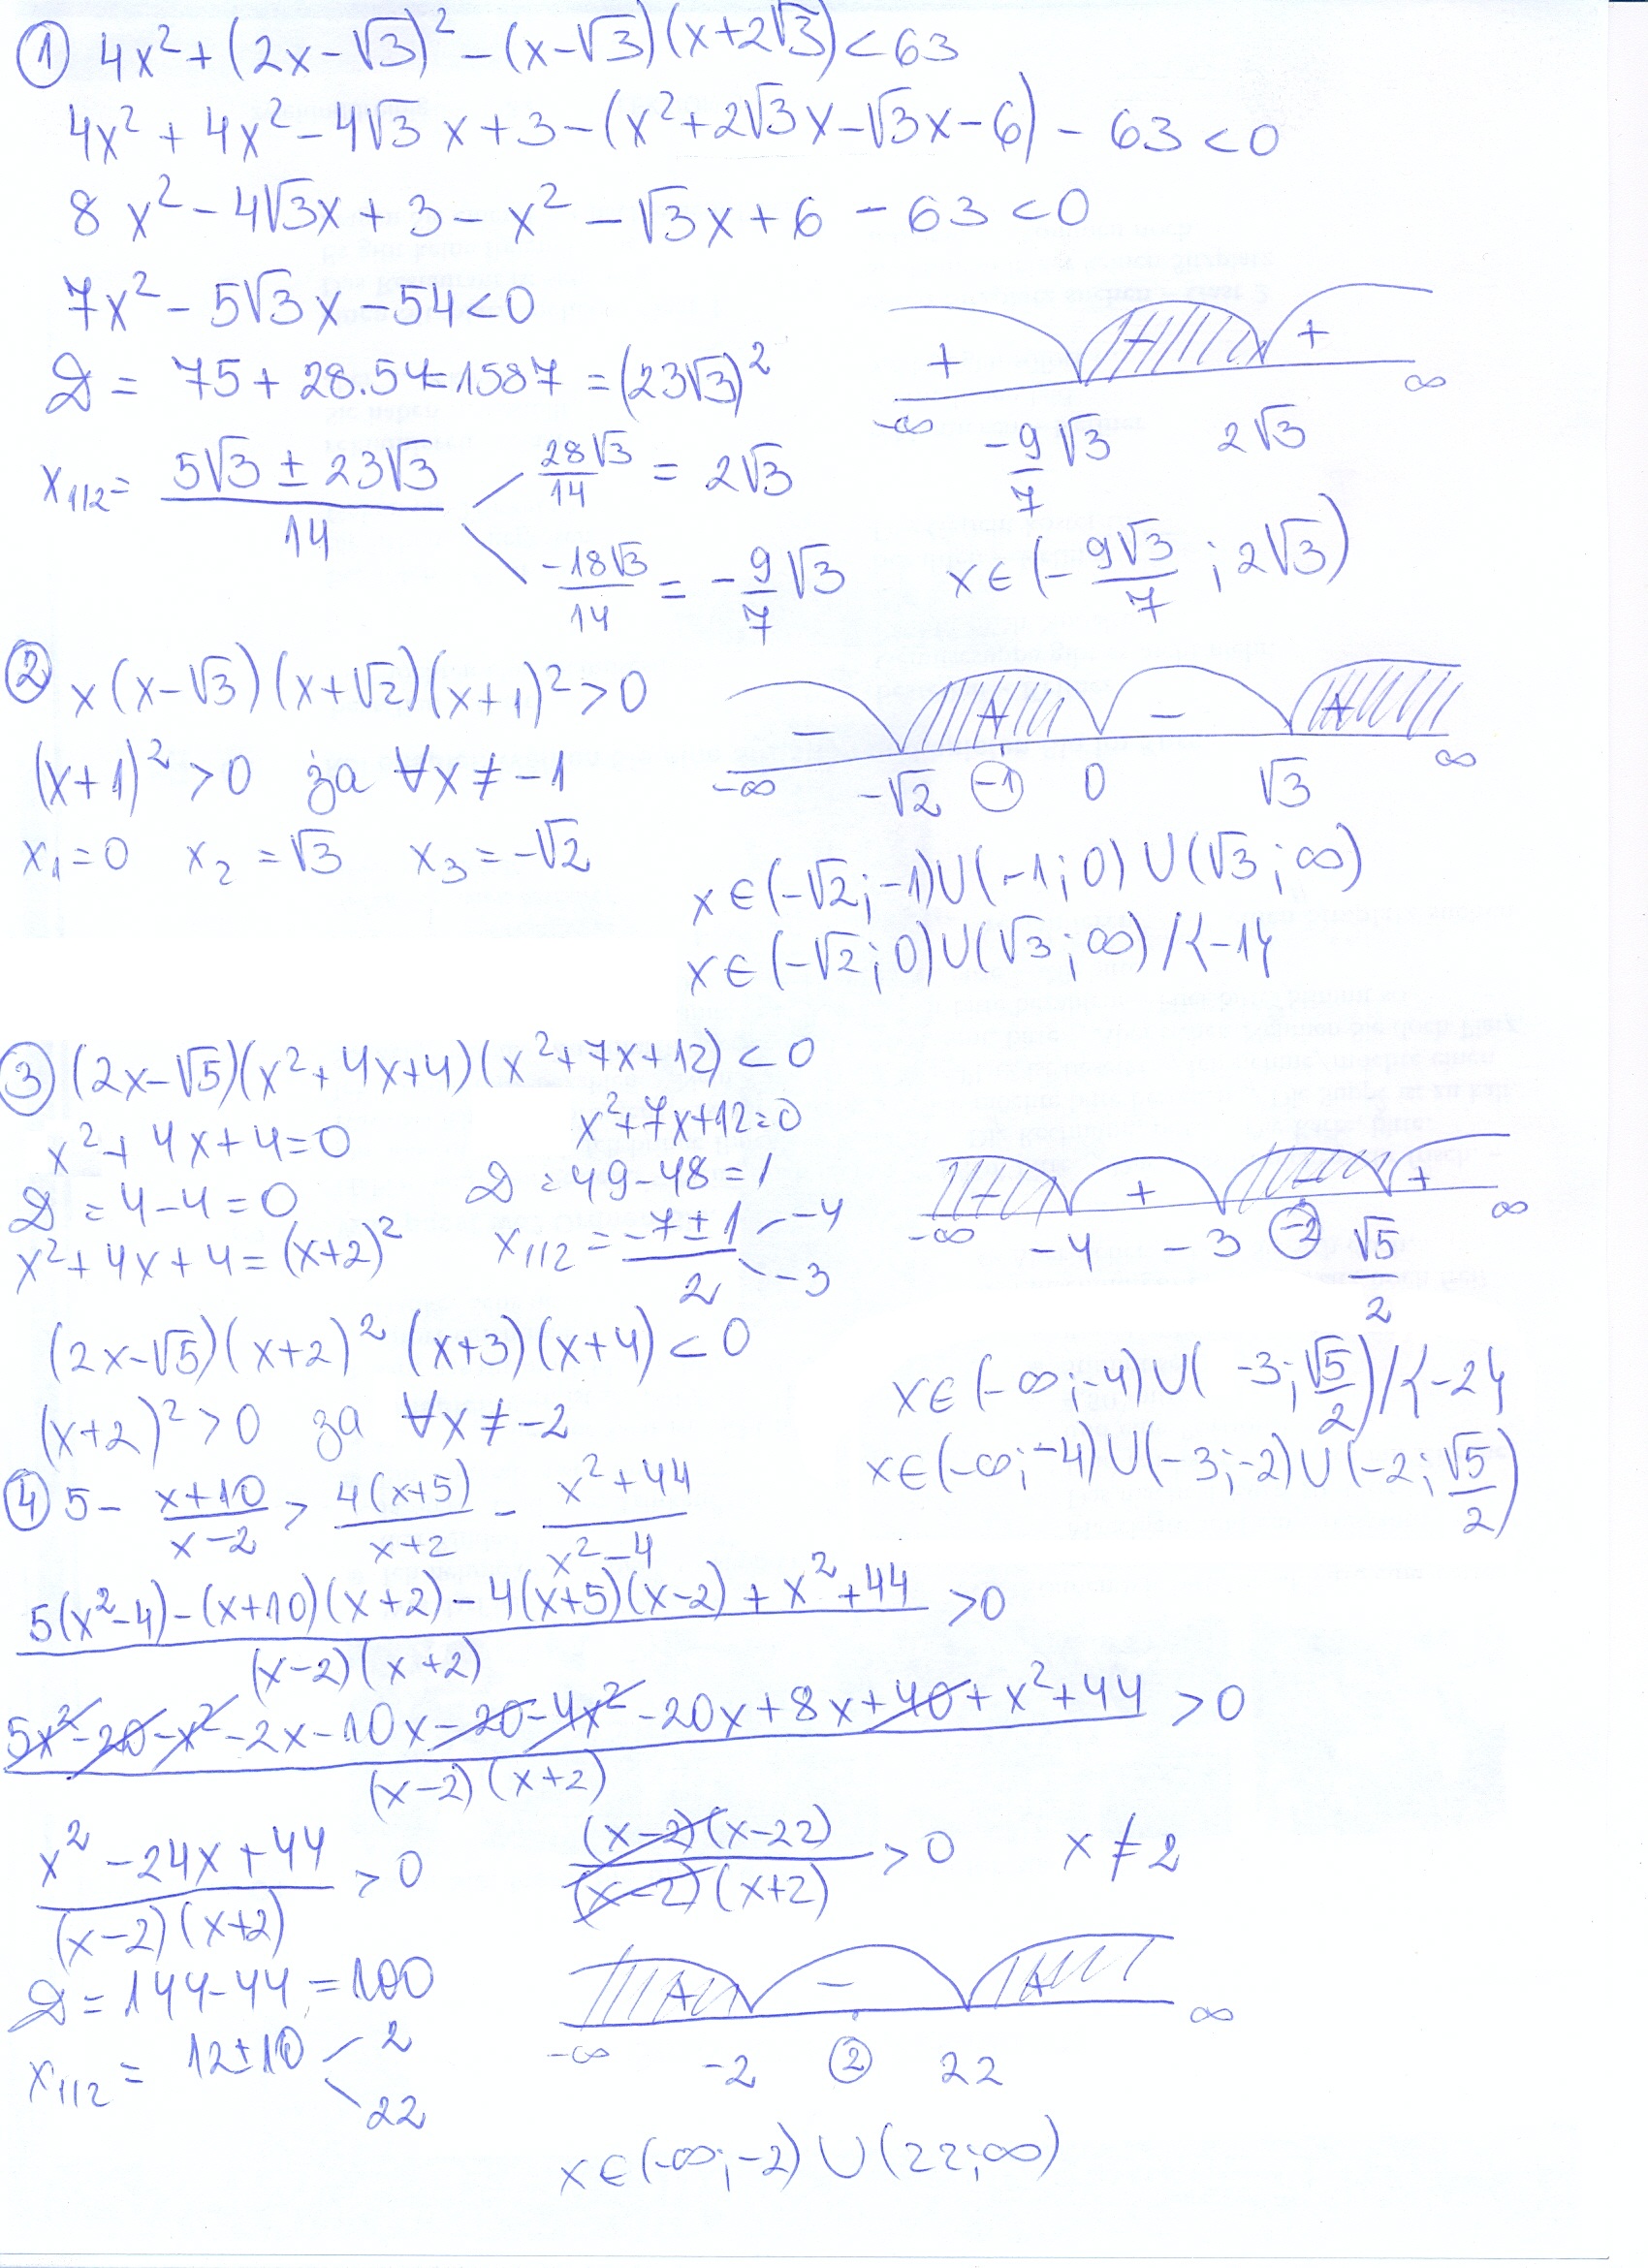 ① 4x² + (2x − √3)² − (x − √3)(x + 2√3) < 63
4x² + 4x² − 4√3 x + 3 − (x² + 2√3x − √3x − 6) − 63 < 0
8 x² − 4√3x + 3 − x² − √3x + 6 − 63 < 0
7x² − 5√3x − 54 < 0
D = 75 + 28.54 = 1587 = (23√3)²
x₁,₂ = (5√3 ± 23√3)/14
28√3/14 = 2√3
−18√3/14 = −9/7 √3
+ − +
−∞ −9/7 √3 2√3 ∞
x ∈ (−9√3/7 ; 2√3)
② x(x − √3)(x + √2)(x + 1)² > 0
(x+1)² > 0 за ∀x ≠ −1
x₁ = 0 x₂ = √3 x₃ = −√2
− + − +
−∞ −√2 −1 0 √3 ∞
x ∈ (−√2; −1) ∪ (−1; 0) ∪ (√3; ∞)
x ∈ (−√2; 0) ∪ (√3; ∞) / {−1}
③ (2x − √5)(x² + 4x + 4)(x² + 7x + 12) < 0
x² + 4x + 4 = 0
D = 4 − 4 = 0
x² + 4x + 4 = (x+2)²
x² + 7x + 12 = 0
D = 49 − 48 = 1
x₁,₂ = (−7 ± 1)/2
−4
−3
− + − +
−∞ −4 −3 −2 √5/2 ∞
(2x − √5)(x + 2)² (x + 3)(x + 4) < 0
(x+2)² > 0 за ∀x ≠ −2
x ∈ (−∞; −4) ∪ (−3; √5/2) / {−2}
x ∈ (−∞; −4) ∪ (−3; −2) ∪ (−2; √5/2)
④ 5 − (x+10)/(x−2) > 4(x+5)/(x+2) − (x²+44)/(x²−4)
(5(x²−4) − (x+10)(x+2) − 4(x+5)(x−2) + x² + 44)/((x−2)(x+2)) > 0
(5x² − 20 − x² − 2x − 10x − 20 − 4x² − 20x + 8x + 40 + x² + 44)/((x−2)(x+2)) > 0
(x² − 24x + 44)/((x−2)(x+2)) > 0
D = 144 − 44 = 100
x₁,₂ = 12 ± 10
2
22
((x−2)(x−22))/((x−2)(x+2)) > 0 x ≠ 2
+ − +
−∞ −2 2 22 ∞
x ∈ (−∞; −2) ∪ (22; ∞)